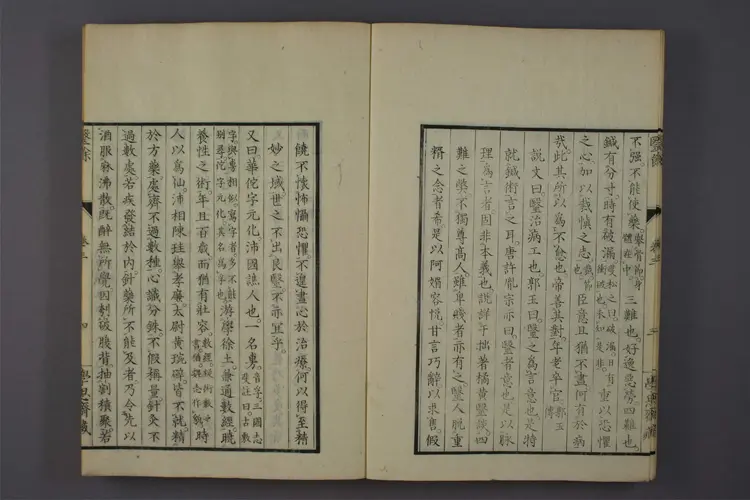 不强不能使藥骨節身體在中三難也好逸惡勞四難也
鍼有分寸時有破漏重以恐懼
之心加以裁慎之志臣意且猶不盡何有於病
哉此其所以爲不愈也帝善其對年老卒官郭玉傳
說文曰毉治病工也郭玉曰毉之爲言意也是特
就鍼術言之耳唐許胤宗亦曰毉者意也是以脉
理爲言者因非本義也説詳于拙著橘黄毉談四
難之獘不獨尊高人雖卑賤者亦有之毉人脱重
糈之念者希是以阿媚容悦甘言巧辭以求售假
饒不懷怖懾恐懼不遑盡心於治療何以得至精
妙之域世之不出良毉不亦宜乎
又曰華佗字元化沛國譙人也一名旉
游學徐土兼通數經曉
養性之術年且百歲而猶有壯容時
人以爲仙沛相陳珪舉孝廉太尉黄琬辟皆不就精
於方藥處齊不過數種心識分銖不假稱量針灸不
過數處若疾發結於内針藥所不能及者乃令先以
酒服麻沸散既醉無所覺因刳破腹背抽割積聚若
毉餘
卷三
四